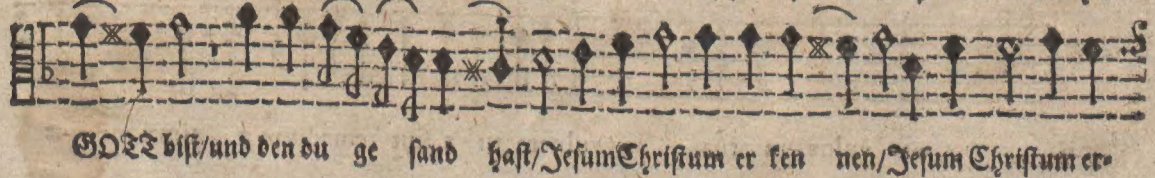 GOTT bist/und den du ge sand hast/Jesum Christum er ken nen/Jesum Christum er-